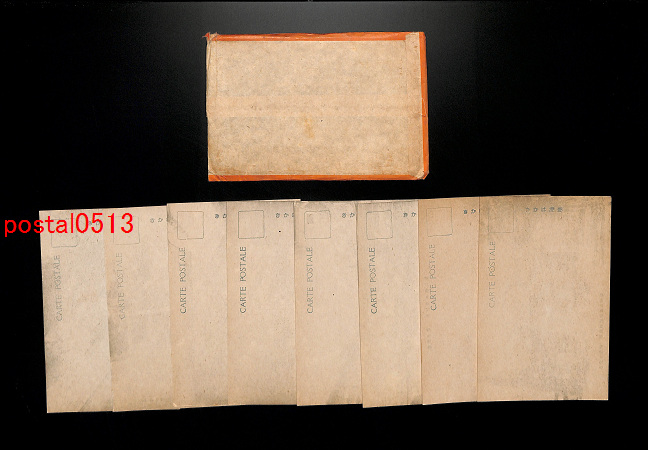 postal0513
CARTE POSTALE
CARTE POSTALE
CARTE POSTALE
CARTE POSTALE
CARTE POSTALE
CARTE POSTALE
CARTE POSTALE
CARTE POSTALE